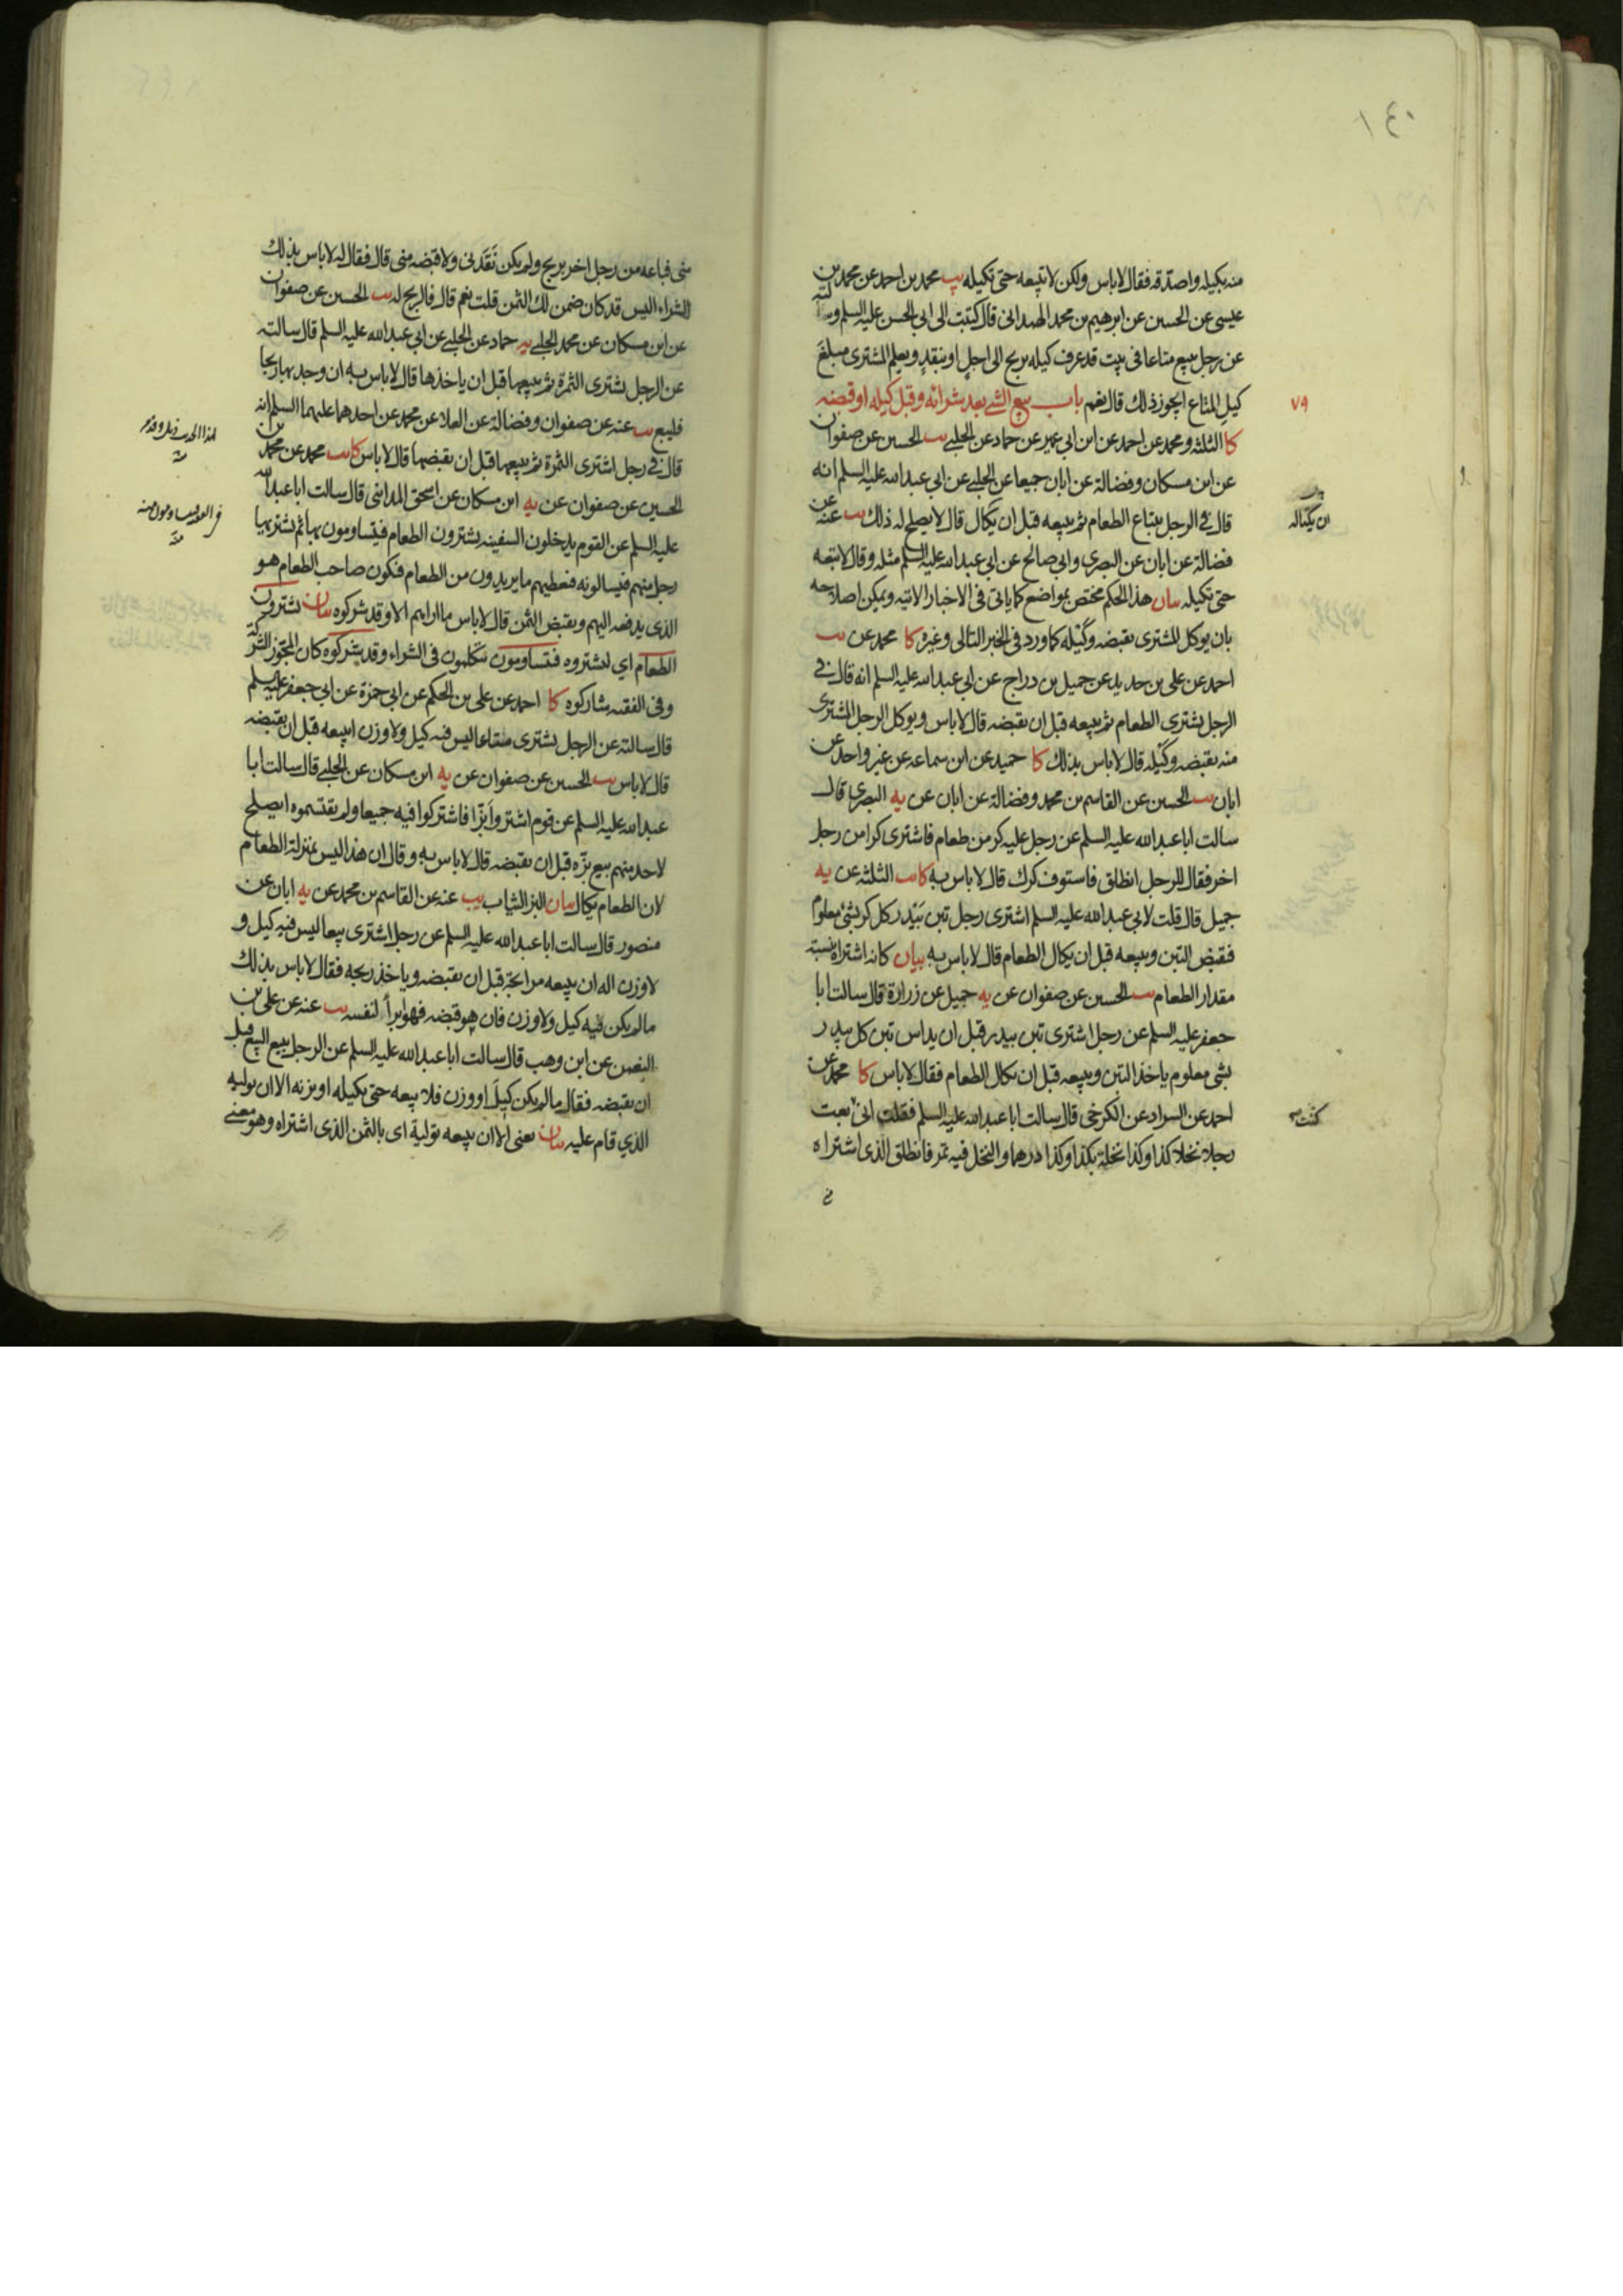 ١٤٠
منه بكيله واصدقه فقال لا باس ولكن لا تبيعه حتى تكيله يب محمد بن احمد عن محمد بن
عيسى عن الحسين عن ابرهيم بن محمد الهمداني قال كتبت الى ابي الحسن عليه السلم وسالته
عن رجل يبيع متاعا في بيت قد عرف كيله بربح الى اجل او بنقد ويعلم المشترى مبلغ
كيل المتاع ايجوز ذلك قال نعم باب بيع الشي بعد شرائه وقبل كيله او قبضه
٧٩
كا الثلثة ومحمد عن احمد عن ابن ابي عمير عن حماد عن الحلبي يب الحسين عن صفوان
عن ابن مسكان وفضالة عن ابان جميعا عن الحلبي عن ابي عبد الله عليه السلم انه
قال في الرجل يبتاع الطعام ثم يبيعه قبل ان يكال قال لا يصلح له ذلك يب عنه عن
ان يكتاله
فضالة عن ابان عن البصري وابي صالح عن ابي عبد الله عليه السلم مثله وقال لا تبعه
حتى تكيله بيان هذا الحكم مختص بمواضع كما ياتي في الاخبار الاتيه ويمكن اصلاحه
بان يوكل المشترى بقبضه وكيله كما ورد في الخبر التالى وغيره كا محمد عن يب
احمد عن علي بن حديد عن جميل بن دراج عن ابي عبد الله عليه السلم انه قال في
الرجل يشترى الطعام ثم يبيعه قبل ان يقبضه قال لا باس ويوكل الرجل المشترى
منه بقبضه وكيله قال لا باس بذلك كا حميد عن ابن سماعه عن غير واحد عن
ابان يب الحسين عن القاسم بن محمد وفضالة عن ابان عن يه البصرى قال
سالت ابا عبد الله عليه السلم عن رجل عليه كر من طعام فاشترى كرا من رجل
اخر فقال للرجل انطلق فاستوف كرك قال لا باس به كا يب الثلثه عن يه
جميل قال قلت لابي عبد الله عليه السلم اشترى رجل تبن بيدر كل كر بشئ معلوم
فقبض التبن ويبيعه قبل ان يكال الطعام قال لا باس به بيان كانه اشتراه بنسبة
مقدار الطعام يب الحسين عن صفوان عن يه جميل عن زرارة قال سالت ابا
جعفر عليه السلم عن رجل اشترى تبن بيدر قبل ان يداس تبن كل بيدر
بشي معلوم ياخذ التبن ويبيعه قبل ان يكال الطعام فقال لا باس كا محمد عن
احمد عن السراد عن الكرخى قال سالت ابا عبد الله عليه السلم فقلت انى بعت
كنت
رجلا نخلا كذا وكذا نخلة بكذا وكذا درهما والنخل فيه ثمر فانطلق الذى اشتراه
منى فباعه من رجل اخر بربح ولم يكن نقدنى ولا قبضه منى قال فقال له لا باس بذلك
الشراء اليس قد كان ضمن لك الثمن قلت نعم قال فالربح له يب الحسين عن صفوان
عن ابن مسكان عن محمد الحلبي يه حماد عن الحلبي عن ابي عبد الله عليه السلم قال سالته
عن الرجل يشترى الثمرة ثم يبيعها قبل ان ياخذها قال لا باس به ان وجد بها ربحا
فليبع يب عنه عن صفوان وفضالة عن العلاء عن محمد عن احدهما عليهما السلم انه
قال في رجل اشترى الثمرة ثم يبيعها قبل ان يقبضها قال لا باس كا يب محمد عن محمد بن
الحسين عن صفوان عن يه ابن مسكان عن اسحق المدائني قال سالت ابا عبد الله
عليه السلم عن القوم يدخلون السفينه يشترون الطعام فيتساومون بها ثم يشتريها
رجل منهم فيسالونه فيعطيهم ما يريدون من الطعام فيكون صاحب الطعام هو
الذى يدفعه اليهم ويقبض الثمن قال لا باس ما اراهم الا وقد شركوه بيان يشترون
الطعام اي ليشتروه فيتساومون يتكلمون في الشراء وقد يشركوه كان المجوز الشركة
وفي الفقيه شاركوه كا احمد عن على بن الحكم عن ابى حمزة عن ابي جعفر عليه السلم
قال سالته عن الرجل يشترى متاعا ليس فيه كيل ولا وزن ايبيعه قبل ان يقبضه
قال لا باس يب الحسين عن صفوان عن يه ابن مسكان عن الحلبي قال سالت ابا
عبد الله عليه السلم عن قوم اشتروا بزا فاشتركوا فيه جميعا ولم يقتسموه ايصلح
لاحد منهم بيع بزه قبل ان يقبضه قال لا باس به وقال ان هذا ليس بمنزلة الطعام
لان الطعام يكال بيان البز الثياب يب عنه عن القاسم بن محمد عن يه ابان عن
منصور قال سالت ابا عبد الله عليه السلم عن رجل اشترى بيعا ليس فيه كيل و
لا وزن اله ان يبيعه مرابحة قبل ان يقبضه وياخذ ربحه فقال لا باس بذلك
ما لم يكن فيه كيل ولا وزن فان هو قبضه فهو ابرأ لنفسه يب عنه عن على بن
النعمن عن ابن وهب قال سالت ابا عبد الله عليه السلم عن الرجل يبيع البيع قبل
ان يقبضه فقال ما لم يكن كيل او وزن فلا تبيعه حتى تكيله او تزنه الا ان توليه
الذي قام عليه بيان يعنى الا ان يبيعه تولية اى بالثمن الذى اشتراه وهو معنى